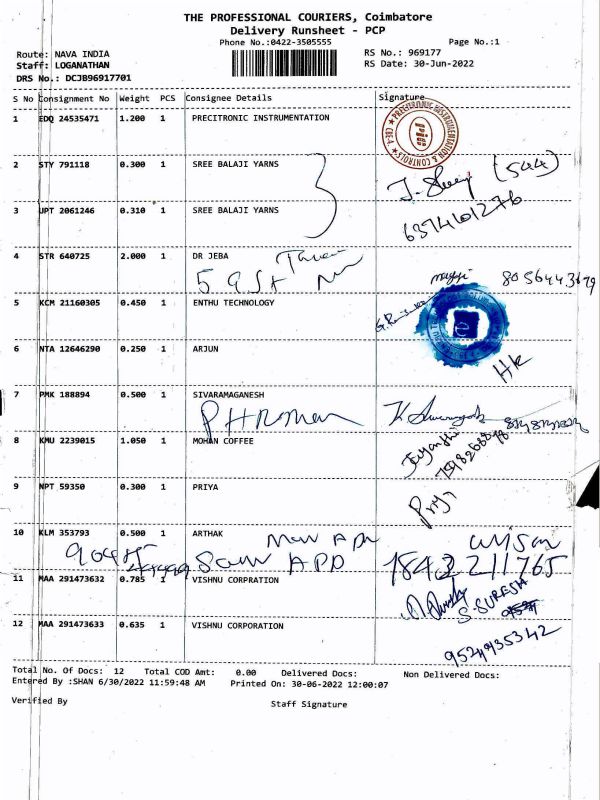 THE PROFESSIONAL COURIERS, Coimbatore
Delivery Runsheet - PCP
Phone No.:0422-3505555 Page No.:1
Route: NAVA INDIA RS No.: 969177
Staff: LOGANATHAN RS Date: 30-Jun-2022
DRS No.: DCJB96917701
S No Consignment No Weight PCS Consignee Details Signature
1 EDQ 24535471 1.200 1 PRECITRONIC INSTRUMENTATION
PRECITRONIC INSTRUMENTATION & CONTROLS
2 STY 791118 0.300 1 SREE BALAJI YARNS
(544)
3 UPT 2061246 0.310 1 SREE BALAJI YARNS
6374101276
4 STR 640725 2.000 1 DR JEBA
8056443679
5 KCM 21160305 0.450 1 ENTHU TECHNOLOGY
6 NTA 12646290 0.250 1 ARJUN
7 PMK 188894 0.500 1 SIVARAMAGANESH
8 KMU 2239015 1.050 1 MOHAN COFFEE
Jayanthi
9 NPT 59350 0.300 1 PRIYA
Priya
10 KLM 353793 0.500 1 ARTHAK
1843211765
11 MAA 291473632 0.785 1 VISHNU CORPRATION
S. SURESH
12 MAA 291473633 0.635 1 VISHNU CORPORATION
9524935342
Total No. Of Docs: 12 Total COD Amt: 0.00 Delivered Docs: Non Delivered Docs:
Entered By :SHAN 6/30/2022 11:59:48 AM Printed On: 30-06-2022 12:00:07
Verified By Staff Signature